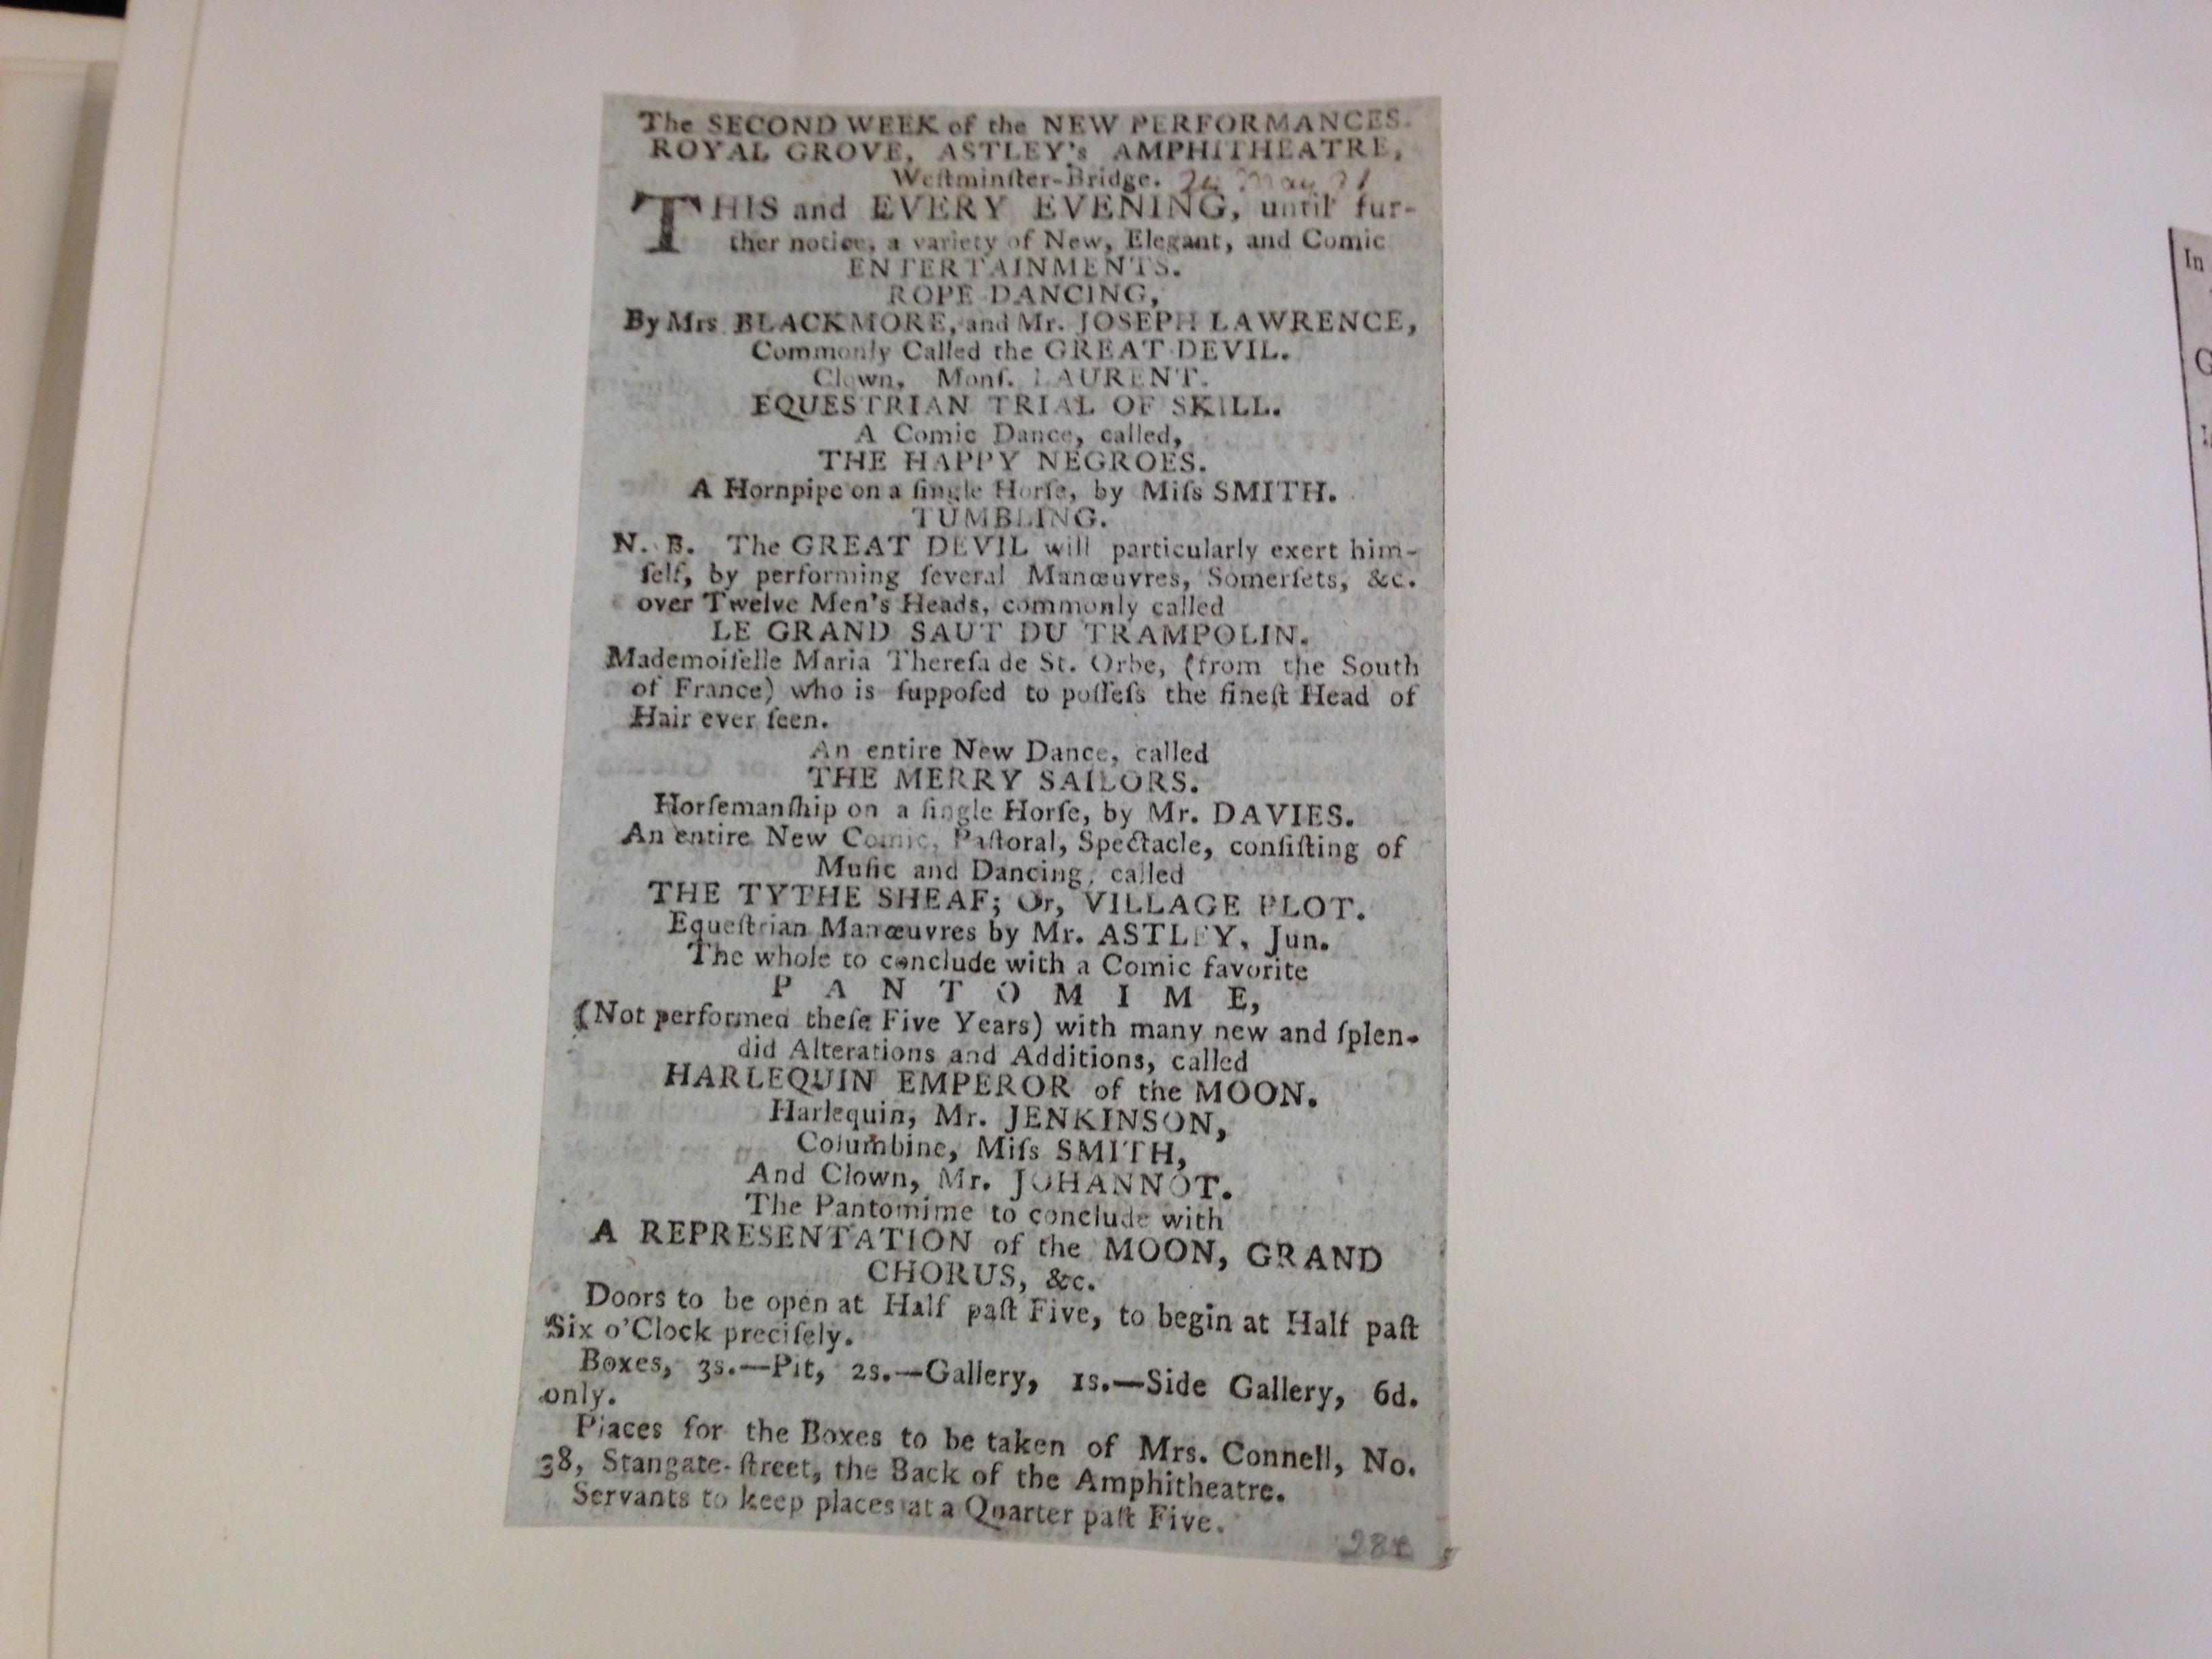 The SECOND WEEK of the NEW PERFORMANCES.
ROYAL GROVE, ASTLEY's AMPHITHEATRE,
Weſtminſter-Bridge. 24 May 91
THIS and EVERY EVENING, until fur-
ther notice, a variety of New, Elegant, and Comic
ENTERTAINMENTS.
ROPE DANCING,
By Mrs. BLACKMORE, and Mr. JOSEPH LAWRENCE,
Commonly Called the GREAT DEVIL.
Clown, Monſ. LAURENT.
EQUESTRIAN TRIAL OF SKILL.
A Comic Dance, called,
THE HAPPY NEGROES.
A Hornpipe on a ſingle Horſe, by Miſs SMITH.
TUMBLING.
N. B. The GREAT DEVIL will particularly exert him-
ſelf, by performing ſeveral Manœuvres, Somerſets, &c.
over Twelve Men's Heads, commonly called
LE GRAND SAUT DU TRAMPOLIN.
Mademoiſelle Maria Thereſa de St. Orbe, (from the South
of France) who is ſuppoſed to poſſeſs the fineſt Head of
Hair ever ſeen.
An entire New Dance, called
THE MERRY SAILORS.
Horſemanſhip on a ſingle Horſe, by Mr. DAVIES.
An entire New Comic, Paſtoral, Spectacle, conſiſting of
Muſic and Dancing, called
THE TYTHE SHEAF; Or, VILLAGE PLOT.
Equeſtrian Manœuvres by Mr. ASTLEY, Jun.
The whole to conclude with a Comic favorite
PANTOMIME,
(Not performed theſe Five Years) with many new and ſplen-
did Alterations and Additions, called
HARLEQUIN EMPEROR of the MOON.
Harlequin, Mr. JENKINSON,
Columbine, Miſs SMITH,
And Clown, Mr. JOHANNOT.
The Pantomime to conclude with
A REPRESENTATION of the MOON, GRAND
CHORUS, &c.
Doors to be open at Half paſt Five, to begin at Half paſt
Six o'Clock preciſely.
Boxes, 3s.—Pit, 2s.—Gallery, 1s.—Side Gallery, 6d.
only.
Places for the Boxes to be taken of Mrs. Connell, No.
38, Stangate-ſtreet, the Back of the Amphitheatre.
Servants to keep places at a Quarter paſt Five.
In